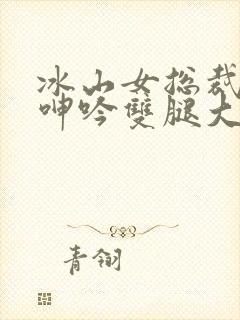 冰山女总裁
呻吟雙腿大
青翎